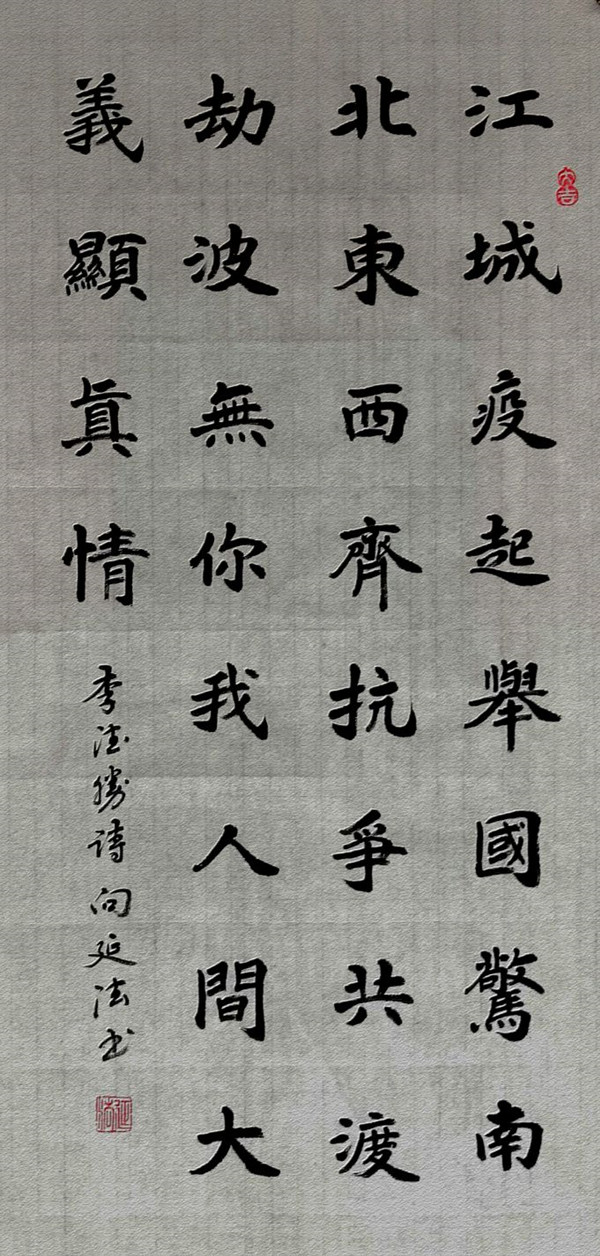 江城疫起舉國驚南
北東西齊抗爭共渡
劫波無你我人間大
義顯真情
李德勝詩向延法书
大吉
延法